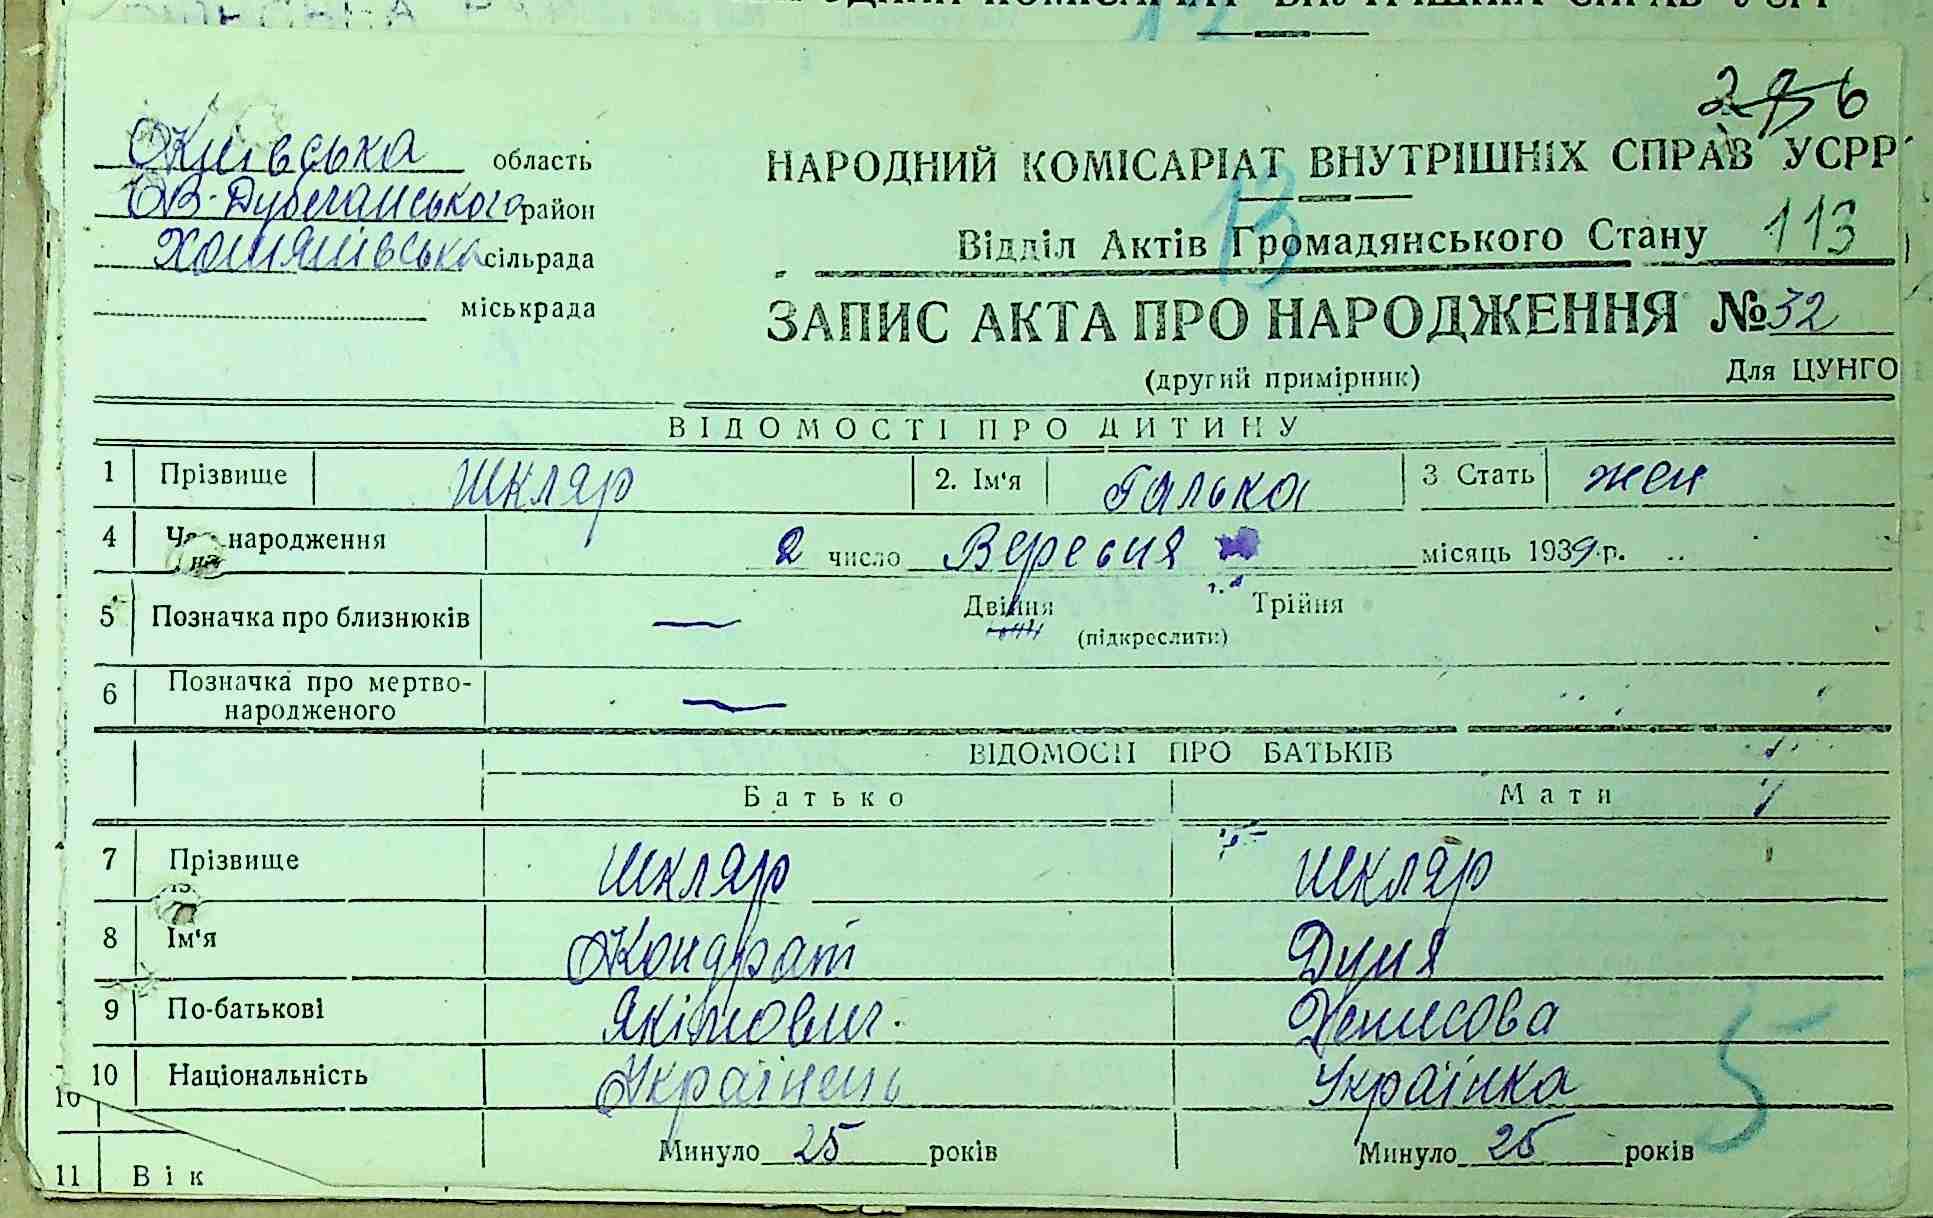 Київська область
В-Дубечанського район
Хотянівська сільрада
міськрада
НАРОДНИЙ КОМІСАРІАТ ВНУТРІШНІХ СПРАВ УСРР
13
Відділ Актів Громадянського Стану 113
ЗАПИС АКТА ПРО НАРОДЖЕННЯ № 32
(другий примірник) Для ЦУНГО
ВІДОМОСТІ ПРО ДИТИНУ
1 Прізвище Шкляр 2. Ім'я Галька 3 Стать жен
4 народження 2 число Вересня місяць 1939 р.
5 Позначка про близнюків — Двійня Трійня
(підкреслити)
6 Позначка про мертво-
народженого —
ВІДОМОСТІ ПРО БАТЬКІВ
Батько Мати
7 Прізвище Шкляр Шкляр
8 Ім'я Кондрат Дуня
9 По-батькові Якімович. Денисова
10 Національність Українець Українка
5
10
Минуло 25 років Минуло 25 років
11 Вік